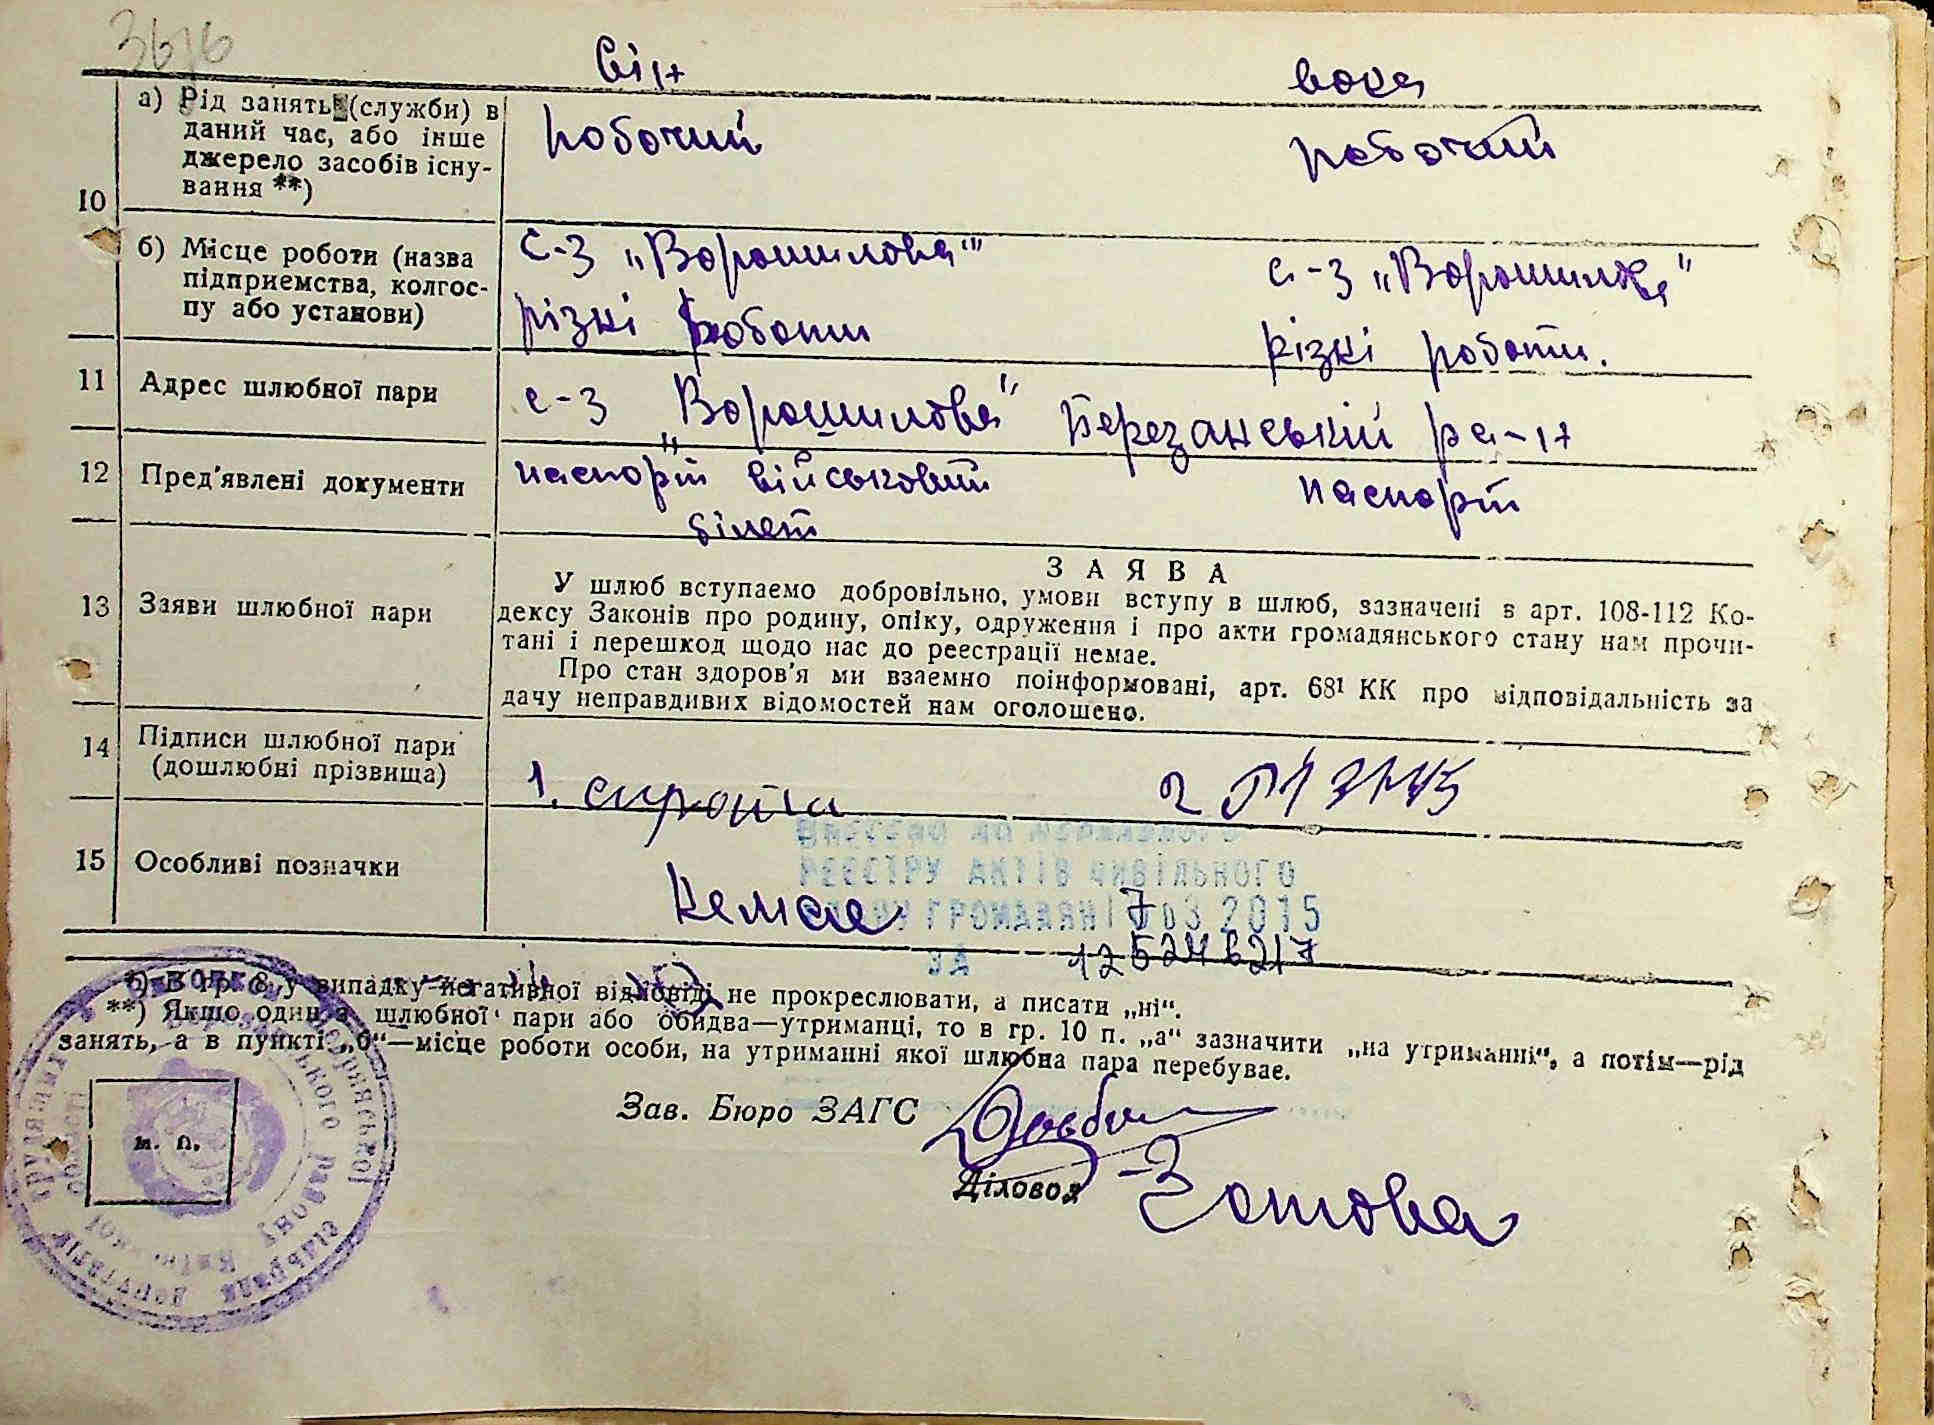 3676
він вона
10 а) Рід занять (службы) в
даний час, або інше
джерело засобів існу-
вання **)
робочий робочий
б) Місце роботи (назва
підприемства, колгос-
пу або установи)
с-з „Ворошилова" с-з „Ворошилова"
різкі роботи різкі роботи.
11 Адрес шлюбної пари
с-з „Ворошилова" Березанський ра-н
12 Пред'явлені документи
паспорт військовий паспорт
білет
13 Заяви шлюбної пари
ЗАЯВА
У шлюб вступаемо добровільно, умови вступу в шлюб, зазначені в арт. 108-112 Ко-
дексу Законів про родину, опіку, одруження і про акти громадянського стану нам прочи-
тані і перешкод щодо нас до реестрації немае.
Про стан здоров'я ми взаемно поінформовані, арт. 68¹ КК про відповідальність за
дачу неправдивих відомостей нам оголошено.
14 Підписи шлюбної пари
(дошлюбні прізвища)
1. сирота 2
15 Особливі позначки
ВНЕСЕНО ДО ДЕРЖАВНОГО
РЕЄСТРУ АКТІВ ЦИВІЛЬНОГО
СТАНУ ГРОМАДЯН 03 2015
немає
ЗА
*) В гр. 8, у випадку негативної відповіді не прокреслювати, а писати „ні".
**) Якщо один з шлюбної пари або обидва—утриманці, то в гр. 10 п. „а" зазначити „на утриманні", а потім—рід
занять, а в пункті „б"—місце роботи особи, на утриманні якої шлюбна пара перебувае.
Зав. Бюро ЗАГС
Діловод Зотова
м. п.